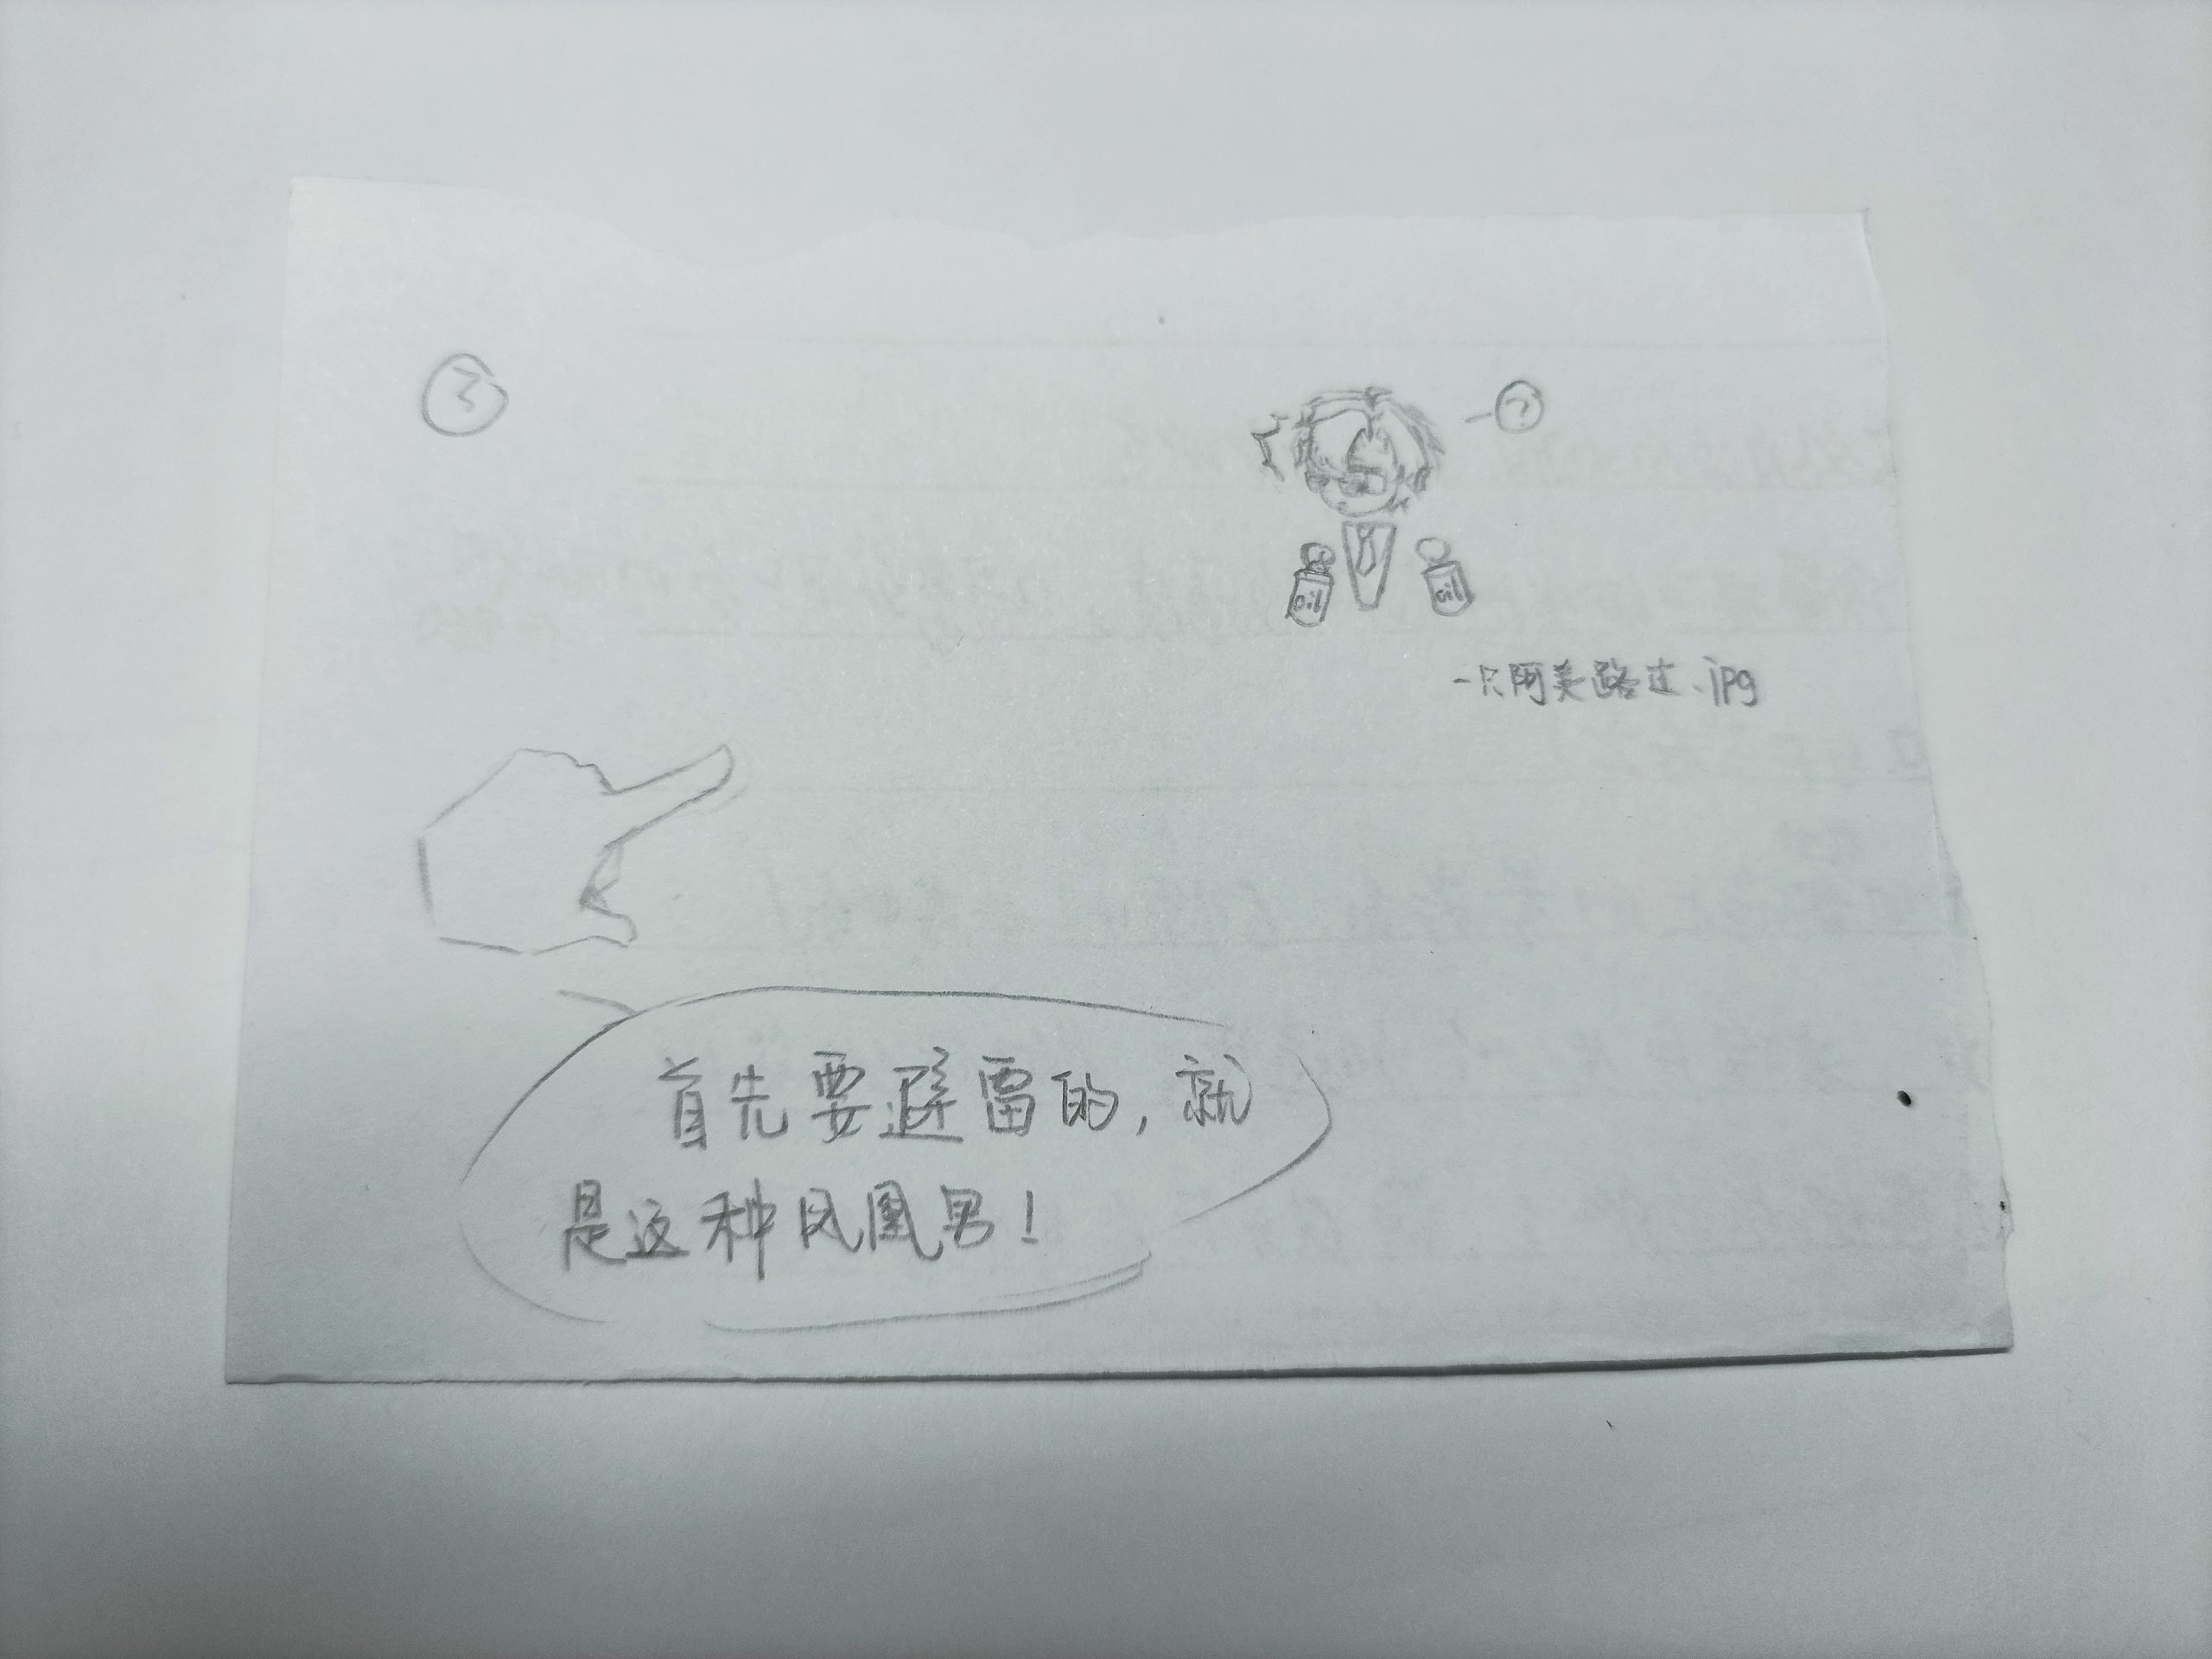 ③
?
oil
oil
一只阿美路过.jpg
首先要避雷的，就
是这种凤凰男！